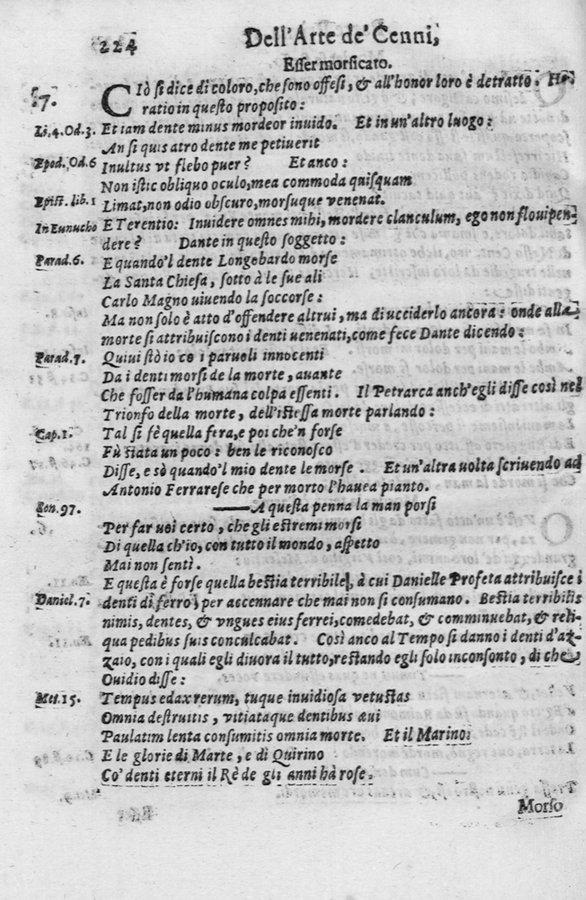 224 Dell'Arte de' Cenni,
Esser morsicato.
7. CIò si dice di coloro, che sono offesi, & all'honor loro è detratto. Ho-
ratio in questo proposito:
Li. 4. Od. 3. Et iam dente minus mordeor inuido. Et in un'altro luogo:
An si quis atro dente me petiuerit
Epod. Od. 6 Inultus vt flebo puer? Et anco:
Non istic obliquo oculo, mea commoda quisquam
Epist. lib. 1 Limat, non odio obscuro, morsuque venenat.
In Eunucho E Terentio: Inuidere omnes mihi, mordere clanculum, ego non floui pen-
dere? Dante in questo soggetto:
Parad. 6. E quando'l dente Longebardo morse
La Santa Chiesa, sotto à le sue ali
Carlo Magno uiuendo la soccorse:
Ma non solo è atto d'offendere altrui, ma di ucciderlo ancora: onde alla
morte si attribuiscono i denti uenenati, come fece Dante dicendo:
Parad. 7. Quiui stò io co i paruoli innocenti
Da i denti morsi de la morte, auante
Che fosser da l'humana colpa essenti. Il Petrarca anch'egli disse così nel
Trionfo della morte, dell'istessa morte parlando:
Cap. 1. Tal si fè quella fera, e poi che'n forse
Fù stata un poco: ben le riconosco
Disse, e sò quando'l mio dente le morse. Et un'altra uolta scriuendo ad
Antonio Ferrarese che per morto l'hauea pianto.
Son. 97. —A questa penna la man porsi
Per far uoi certo, che gli estremi morsi
Di quella ch'io, con tutto il mondo, aspetto
Mai non sentì.
E questa è forse quella bestia terribile, à cui Danielle Profeta attribuisce i
Daniel. 7. denti di ferro, per accennare che mai non si consumano. Bestia terribilis
nimis, dentes, & vngues eius ferrei, comedebat, & comminuebat, & reli-
qua pedibus suis conculcabat. Così anco al Tempo si danno i denti d'az-
zaio, con i quali egli diuora il tutto, restando egli solo inconsonto, di che
Ouidio disse:
Met. 15. Tempus edax rerum, tuque inuidiosa vetustas
Omnia destruitis, vitiataque dentibus æui
Paulatim lenta consumitis omnia morte. Et il Marino:
E le glorie di Marte, e di Quirino
Co' denti eterni il Rè de gli anni hà rose.
Morso